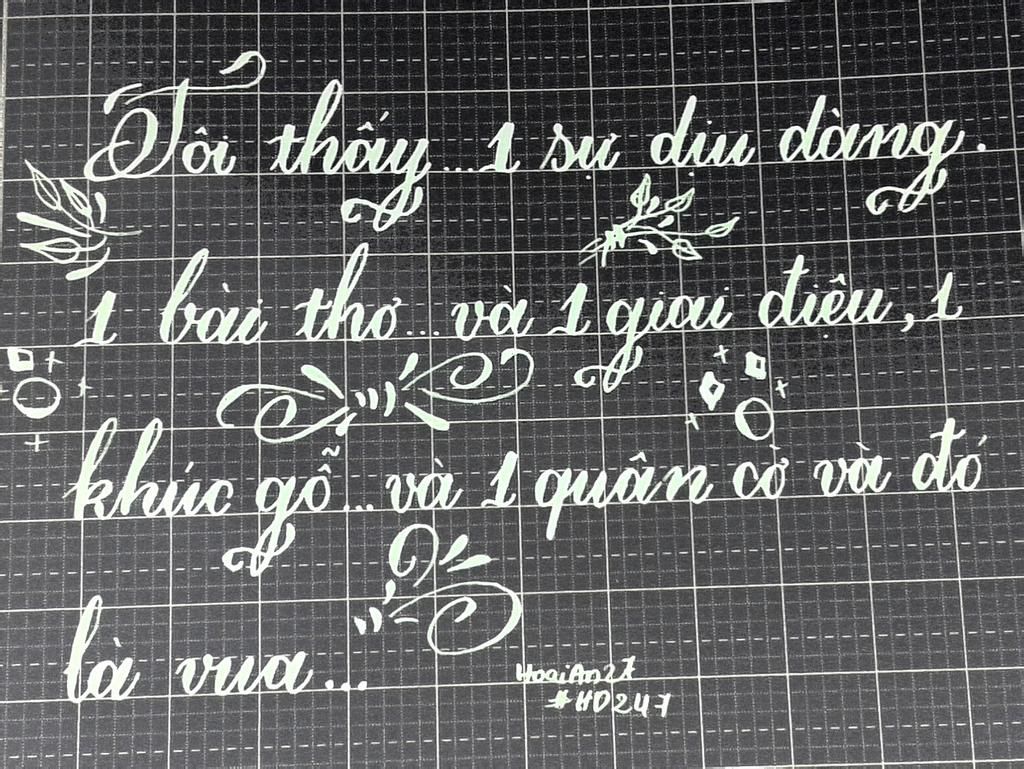 Tôi thấy...1 sự dịu dàng.
1 bài thơ...và 1 giai điệu, 1
khúc gỗ...và 1 quân cờ và đó
là vua...
HoaiAn27
#HD247